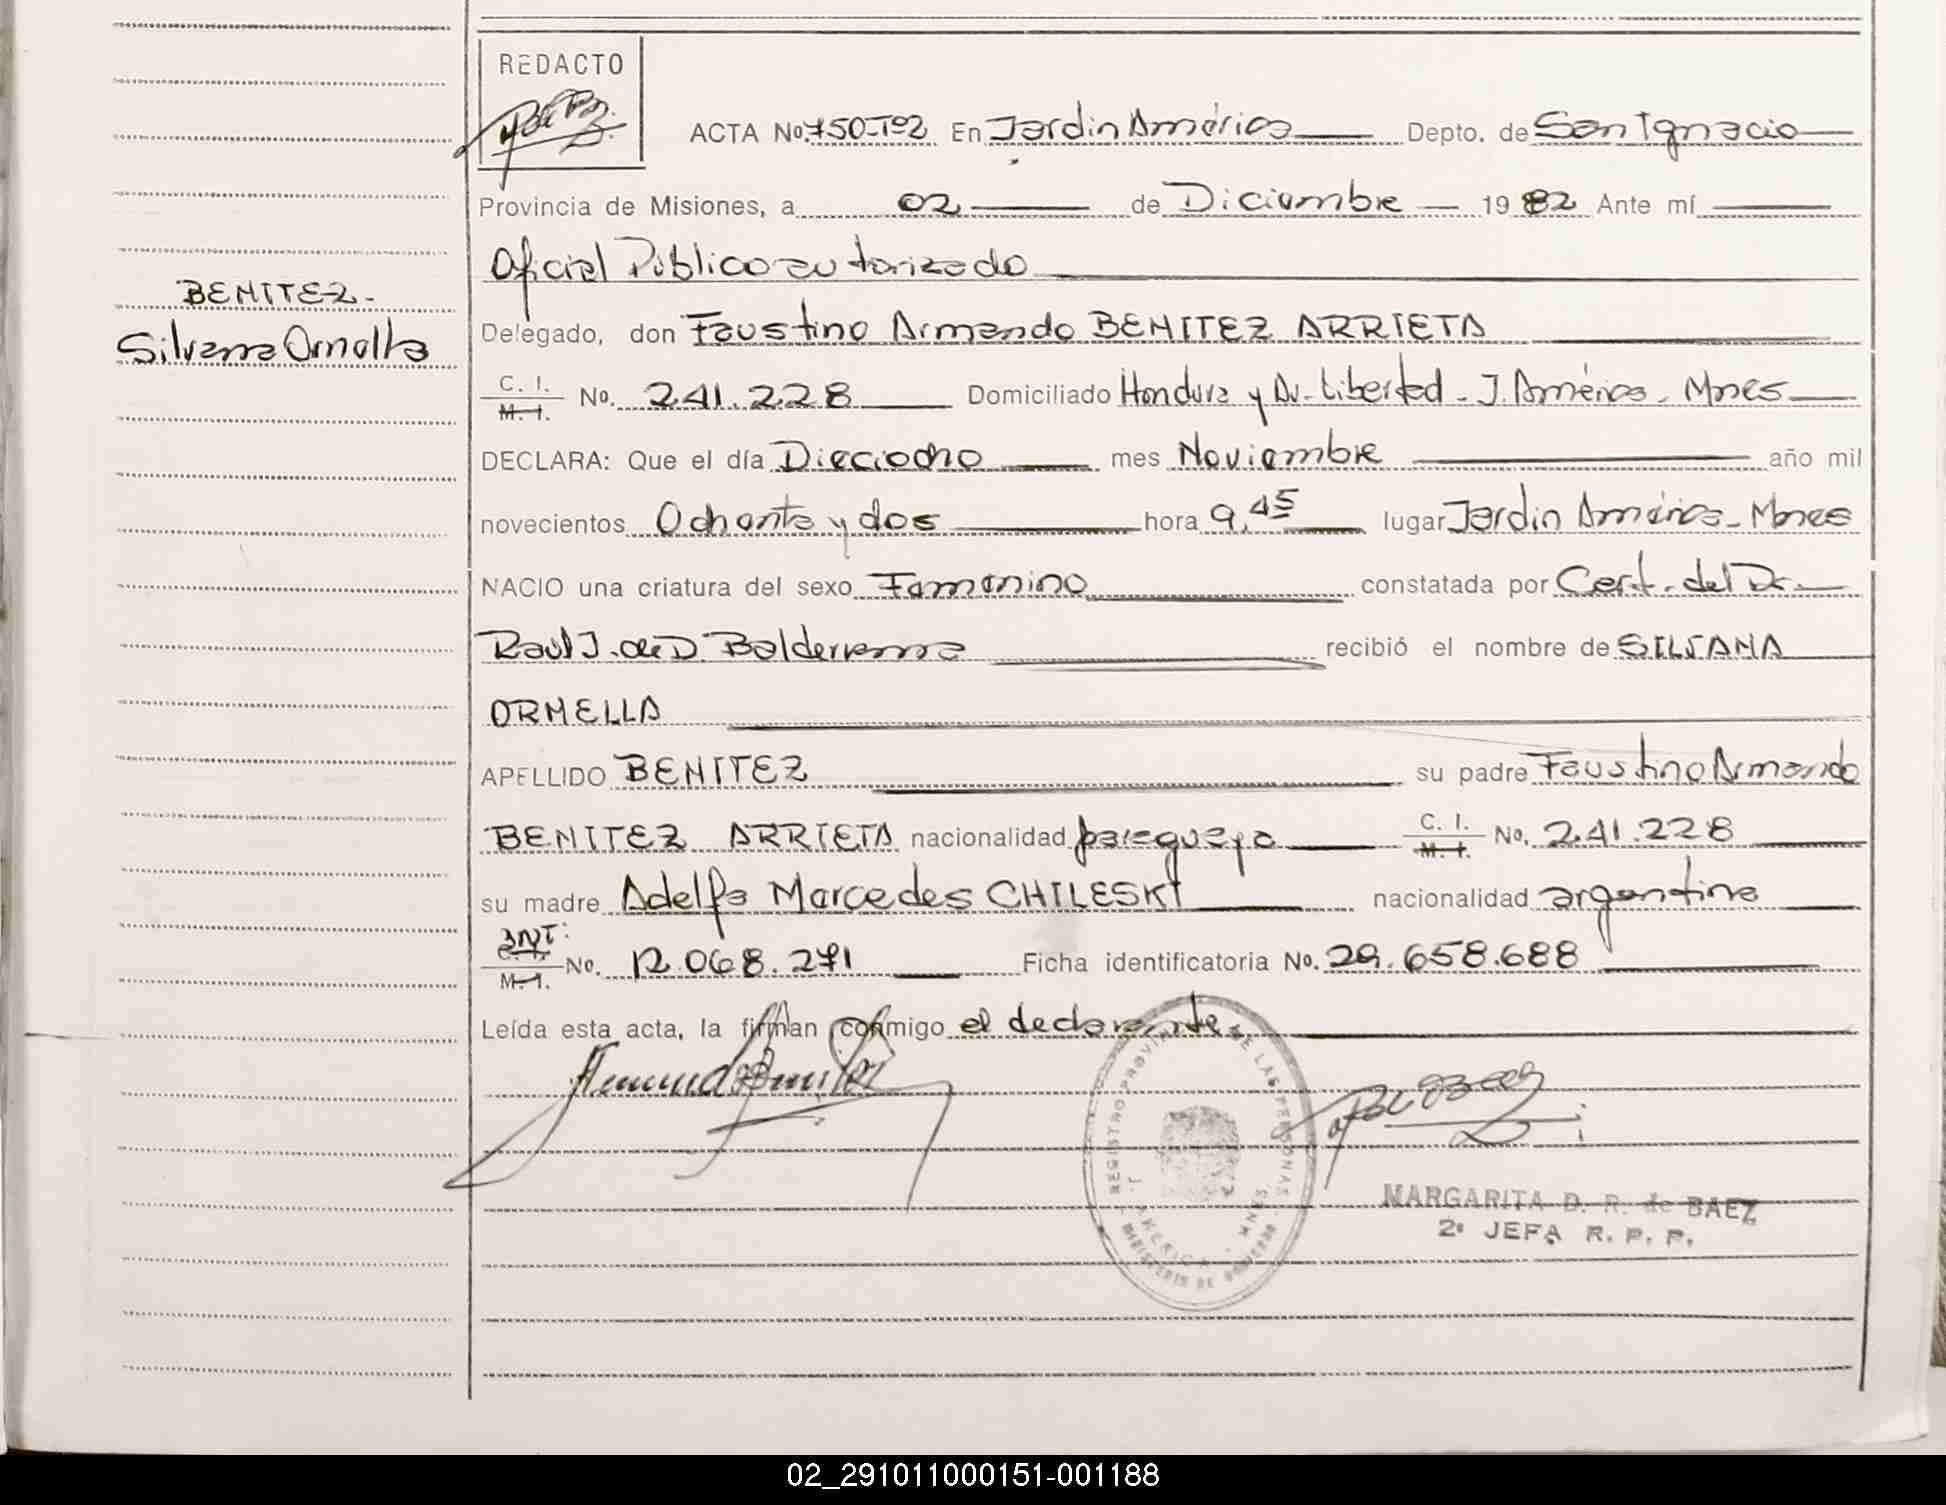 REDACTO
ACTA No 750-Tº2 En Jardin América Depto. de San Ignacio
Provincia de Misiones, a 02 de Diciembre 1982 Ante mí
Oficial Público autorizado
BENITEZ-
Silvana Ornella
Delegado, don Faustino Armando BENITEZ ARRIETA
C. I. M. I. No. 241.228 Domiciliado Hondura y Av. Libertad - J. América - Mnes
DECLARA: Que el día Dieciocho mes Noviembre año mil
novecientos Ochenta y dos hora 9,45 lugar Jardin América - Mnes
NACIO una criatura del sexo Femenino constatada por Cert. del Dr.
Raul J. de D. Balderrama recibió el nombre de SILVANA
ORNELLA
APELLIDO BENITEZ su padre Faustino Armando
BENITEZ ARRIETA nacionalidad paraguaya C. I. M. I. No. 241.228
su madre Adelfa Mercedes CHILESKI nacionalidad argentina
DNI: C. I. M. I. No. 12.068.271 Ficha identificatoria No. 29.658.688
Leída esta acta, la firman conmigo el declarante
REGISTRO PROVINCIAL DE LAS PERSONAS
J. AMERICA - MNES.
MINISTERIO DE GOBIERNO
MARGARITA D. R. de BAEZ
2º JEFA R. P. P.
02_291011000151-001188